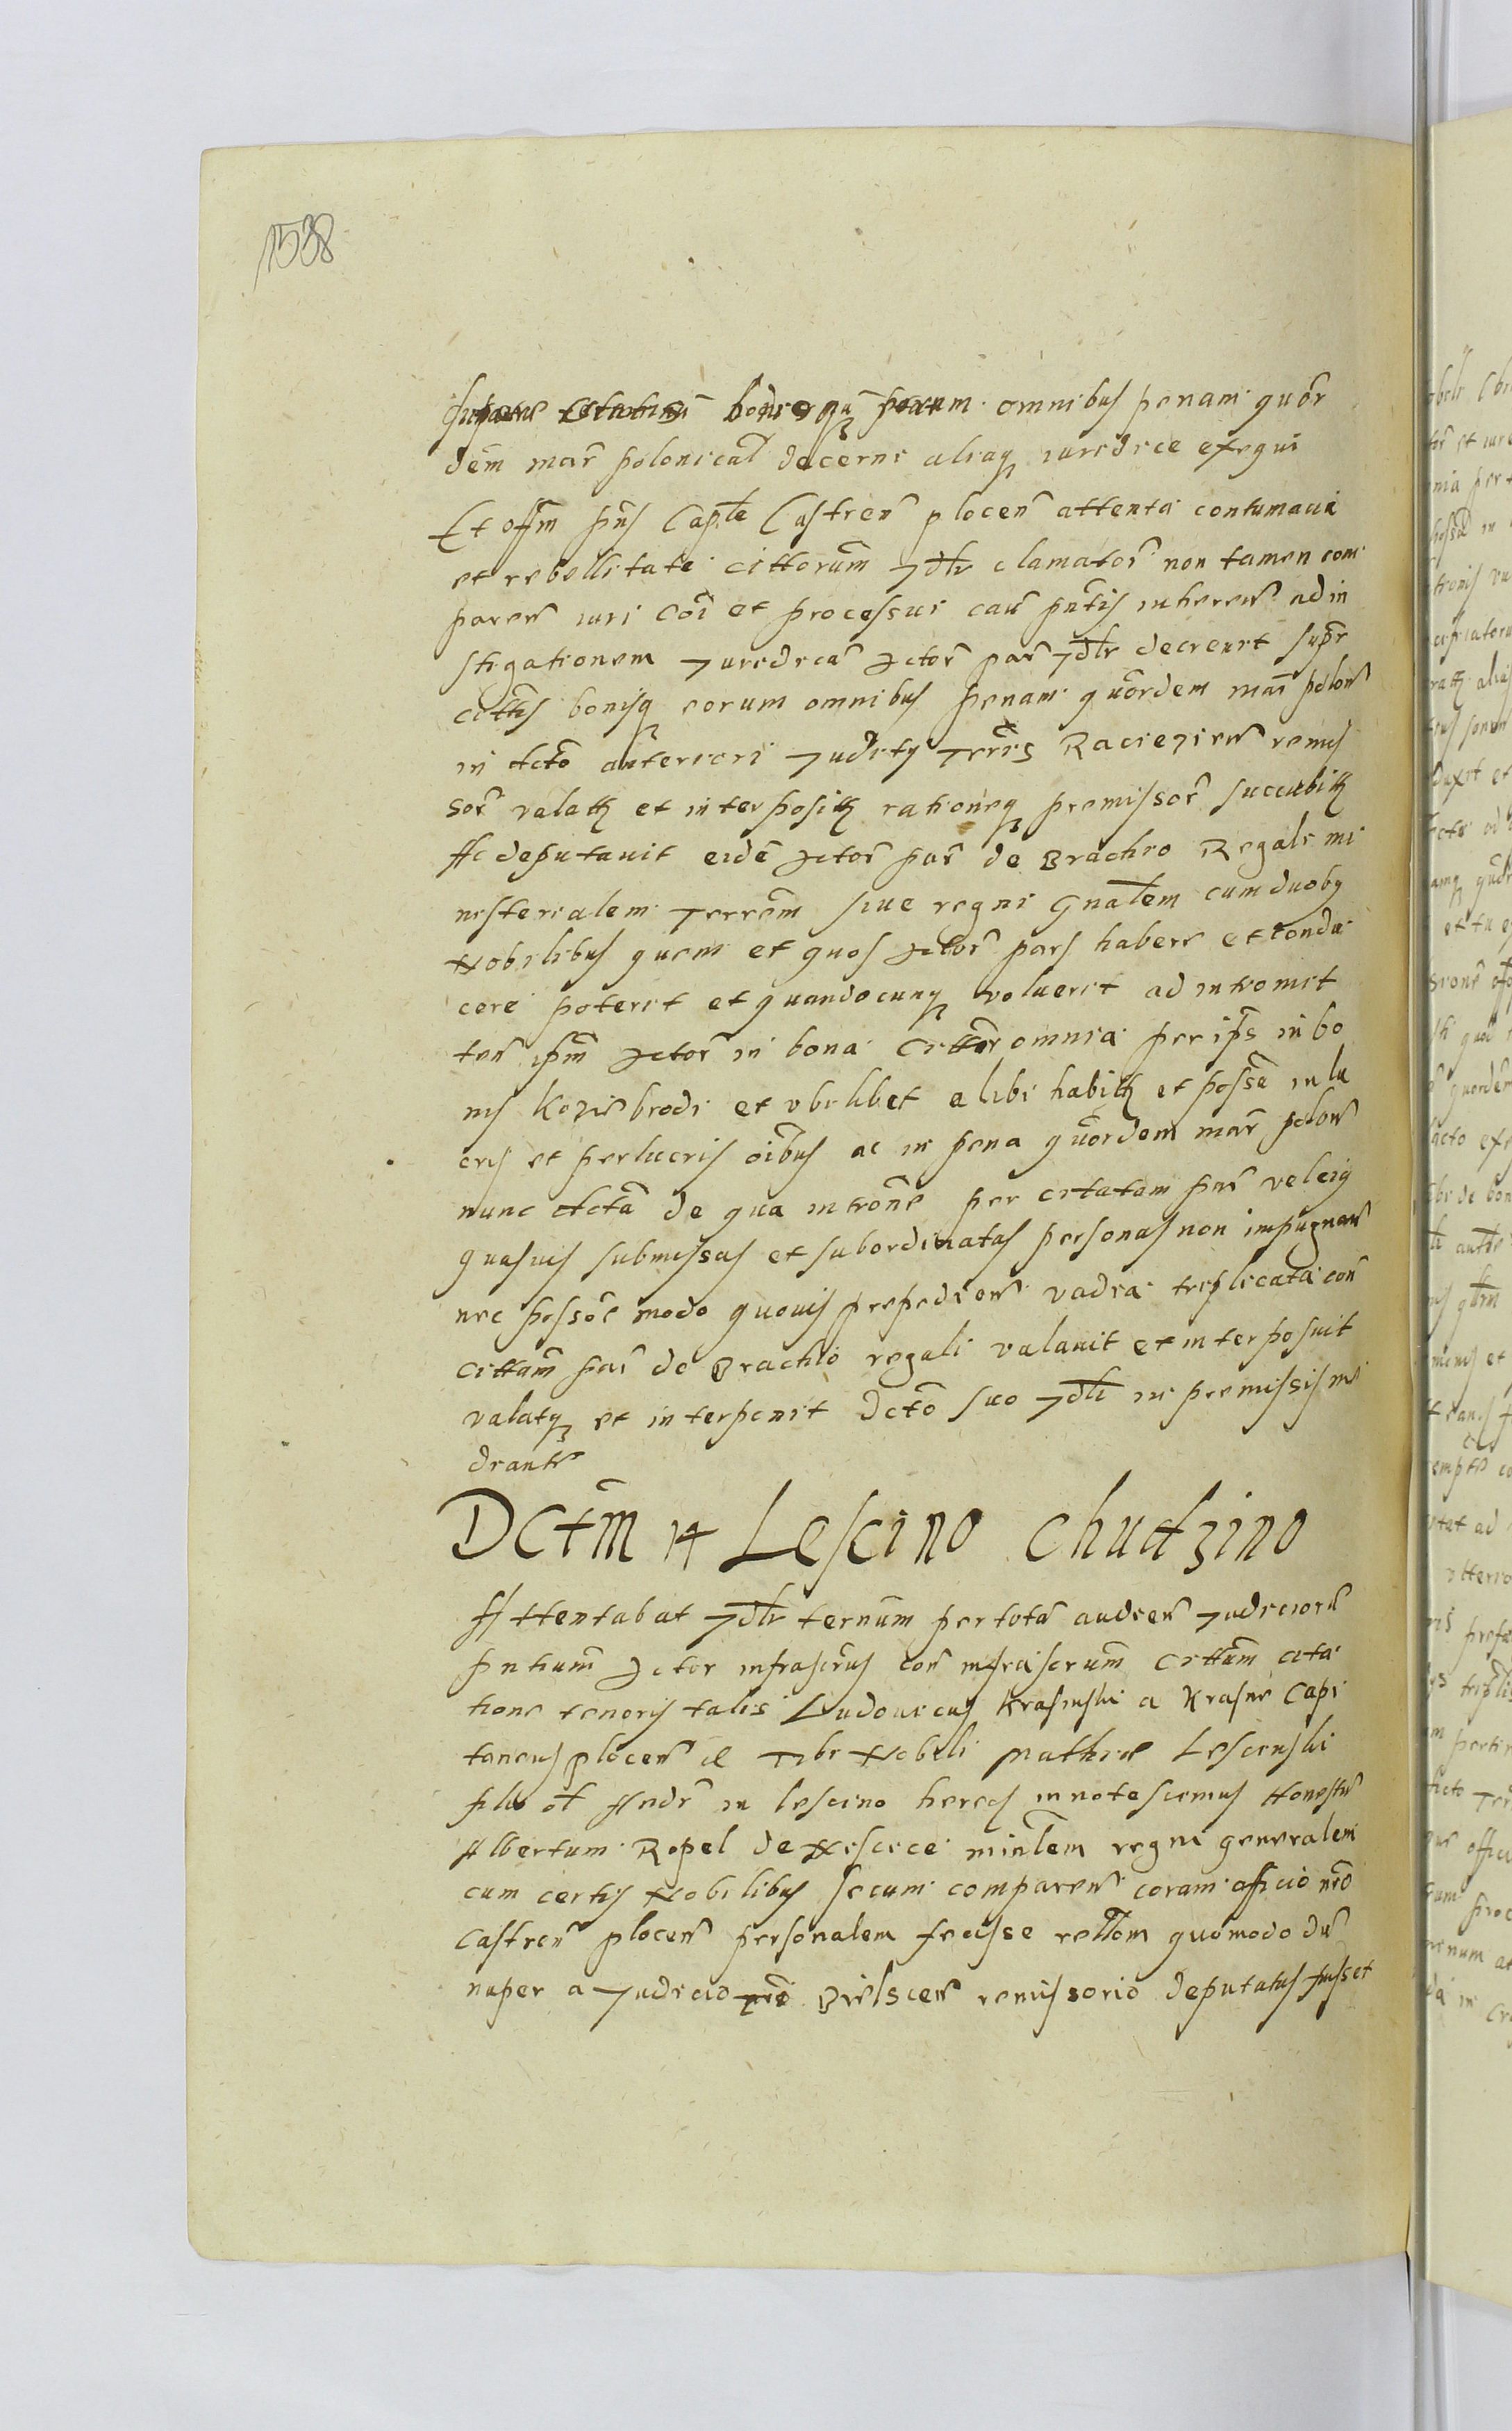 1538
omnibus penam quor
dem mar̃ polonical̃ decerni aliaq̨ iuridice exequi
Et offm̃ pñs Capłe Castren̄ plocen̄ attenta contumacia
et rebellitate cittorum̃ Jdlr clamator̃ non tamen com
paren̄ iuri coi̇̃ et processui cau̇̃ pñtis inheren̄ ad in
stigationem Juridicã Actor̃ par̃ Jdlr decreuit supr̃
cittis bonisq̨ eorum omnibus penam quordem mar̃ polon̄
in Acto anteriori Judity Terris Raciezien̄ remis
sor̃ valatt̨ et interpositt̨ rationeq̨ premissor̃ succubitt̨
Ac deputauit eidẽ Actor̃ par̃ de Brachio Regali mi
nisterialem Terrem̃ siue regni Gnałem cum duoby
Nobilibus quem et quos Actor̃ pars habere et condu
cere poterit et quandocunq̨ voluerit ad intromit
ten̄ ipm̃ Actor̃ in bona Cittor̃ omnia per ips̃ in bo
nis Koziebrodi et vbilibet alibi habitt̨ et possẽ in lu
cris et perlucris oĩbus ac in pena quordem mar̃ polon̄
nunc Actã de qua introñe per citatam par̃ vel eiq̨
quasuis submissas et subordinatas personas non impugnan̄
nec possor̃ modo quouis prepedien̄ vadia triplicata con̄
cittam̃ par̃ de Brachio regali valauit et interposuit
valatq̨ et interponit Dcto suo Jdli in premissis me
diante
DCtm̃ 14 Lescino Chudzino
Attentabat Jdlr ternum̃ per totã audien̄ Judiciorũ
pntium̃ Actor infrascrus̃ con̄ infrascrum̃ Cittum̃ cita
tione tenoris talis Ludouicus Krasinski a Krasne Capi
taneus plocen̄ Tibi Nobili Mathie Lescinski
filio ol̃ Andr̃ in lescino heredi innotescimus Honestũ
Albertum Ropel de Niscice minłem regni generalem
cum certis Nobilibus secum comparen̄ coram officio nr̃o
Castren̄ plocen̄ personalem fecisse rełłom quomodo dũ
nuper a Judicio nr̃o Bielscen̄ remissorio deputatus fuisset